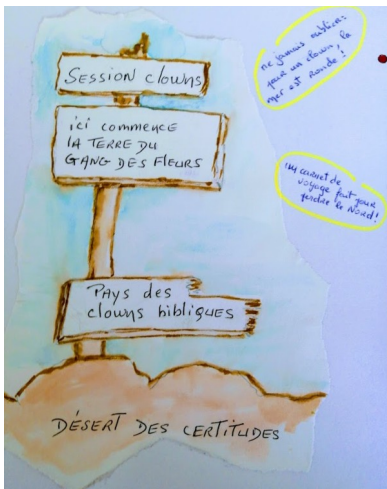 SESSION CLOWNS
ici commence
LA TERRE DU
GANG DES FLEURS
PAYS des
clowns bibliques
DÉSERT DES CERTITUDES
ne jamais oublier:
pour un clown la
mer est Ronde !
un carnet de
voyage fait pour
perdre le Nord!